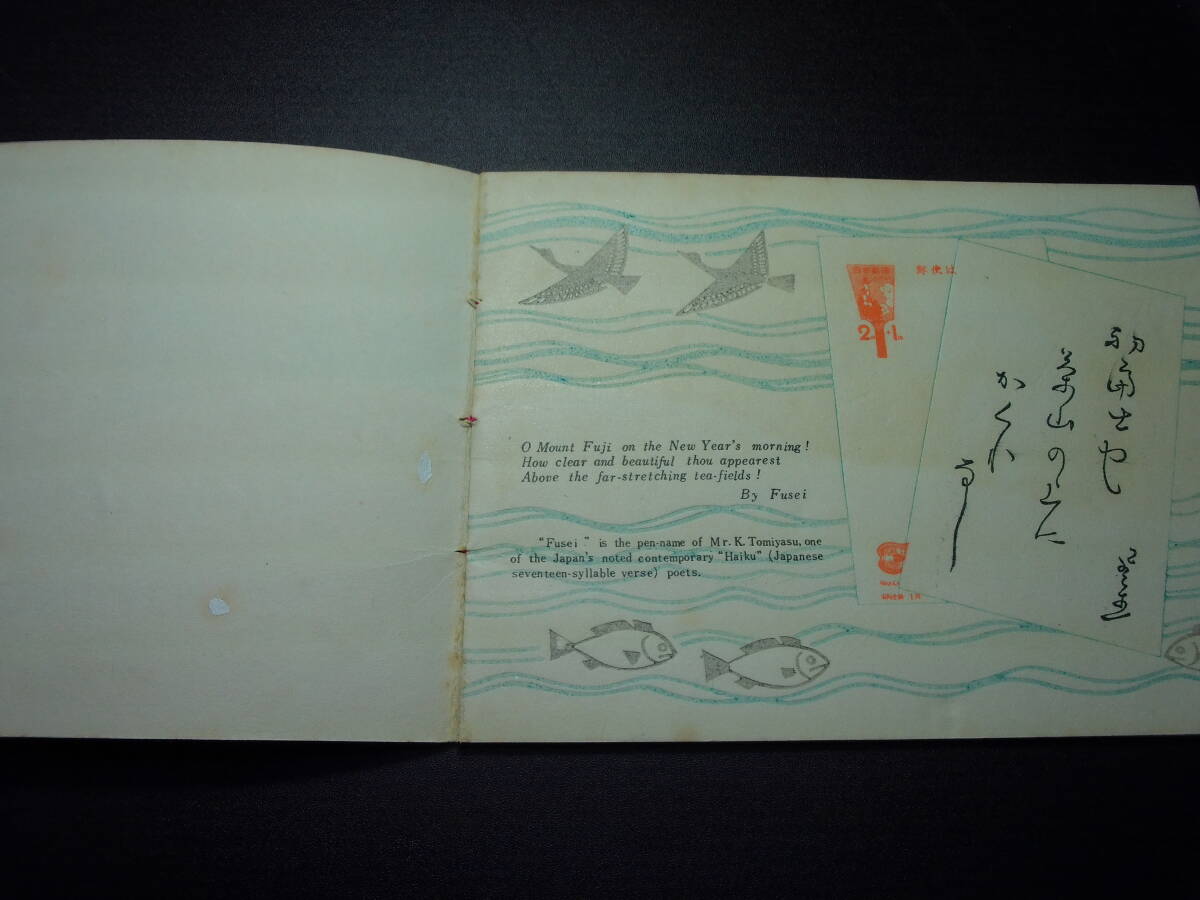 O Mount Fuji on the New Year's morning!
How clear and beautiful thou appearest
Above the far-stretching tea-fields!
By Fusei
"Fusei" is the pen-name of Mr. K. Tomiyasu, one
of the Japan's noted contemporary "Haiku" (Japanese
seventeen-syllable verse) poets.
郵便は
2+1
初富士や
茶山の上に
かくれなし
風生